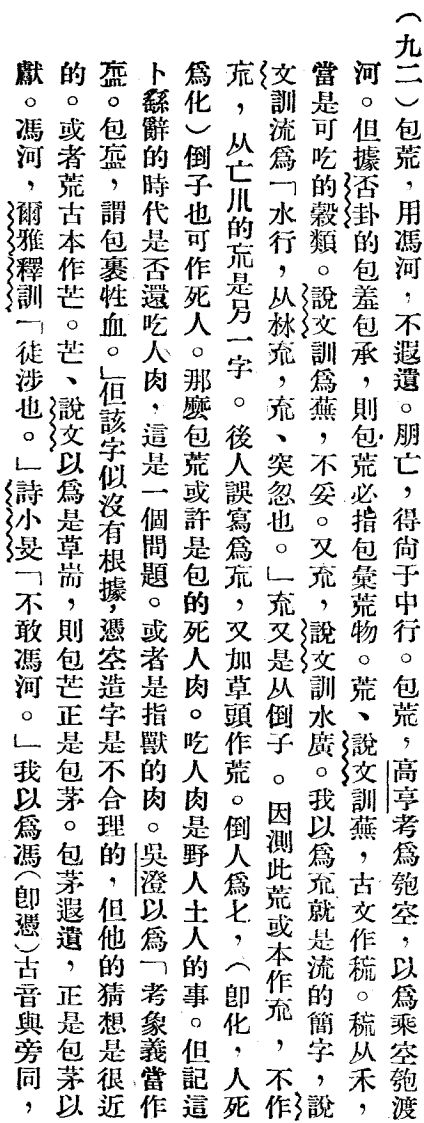 （九二）包荒，用馮河，不遐遺。朋亡，得尙于中行。包荒，高亨考爲匏空，以爲乘空匏渡
河。但據否卦的包羞包承，則包荒必指包彙荒物。荒、說文訓蕪，古文作𥠈。𥠈从禾，
當是可吃的穀類。說文訓爲蕪，不妥。又㐬，說文訓水廣。我以爲㐬就是流的簡字，說
文訓流爲「水行，从沝㐬，㐬、突忽也。」㐬又是从倒子。因測此荒或本作㐬，不作
巟，从亡川的巟是另一字。後人誤寫爲巟，又加草頭作荒。倒人爲𠤎，（卽化，人死
爲化）倒子也可作死人。那麼包荒或許是包的死人肉。吃人肉是野人土人的事。但記這
卜繇辭的時代是否還吃人肉，這是一個問題。或者是指獸的肉。吳澄以爲「考象義當作
𥁃。包𥁃，謂包裹牲血。」但該字似沒有根據，憑空造字是不合理的，但他的猜想是很近
的。或者荒古本作芒。芒、說文以爲是草耑，則包芒正是包茅。包茅遐遺，正是包茅以
獻。馮河，爾雅釋訓「徒涉也。」詩小旻「不敢馮河。」我以爲馮（卽憑）古音與旁同，